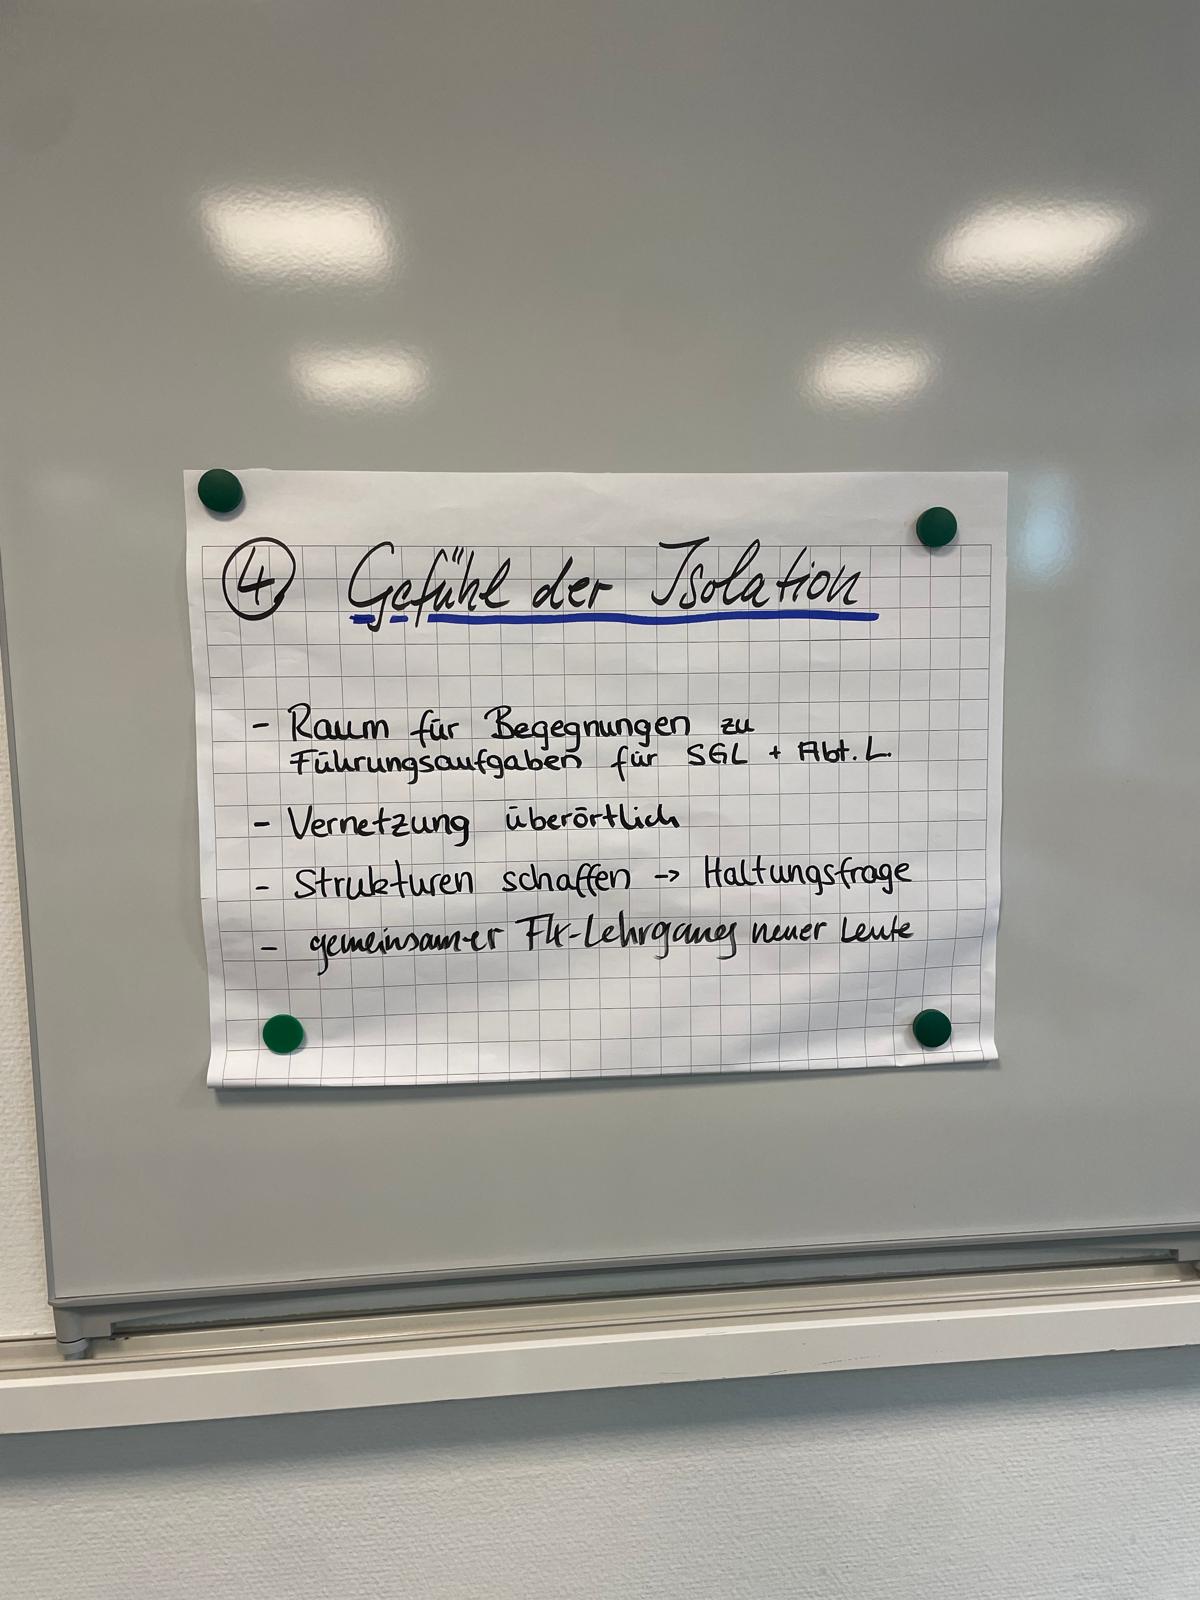 ④ Gefühl der Isolation
- Raum für Begegnungen zu
Führungsaufgaben für SGL + Abt. L.
- Vernetzung überörtlich
- Strukturen schaffen -> Haltungsfrage
- gemeinsamer Fk-Lehrgang neuer Leute